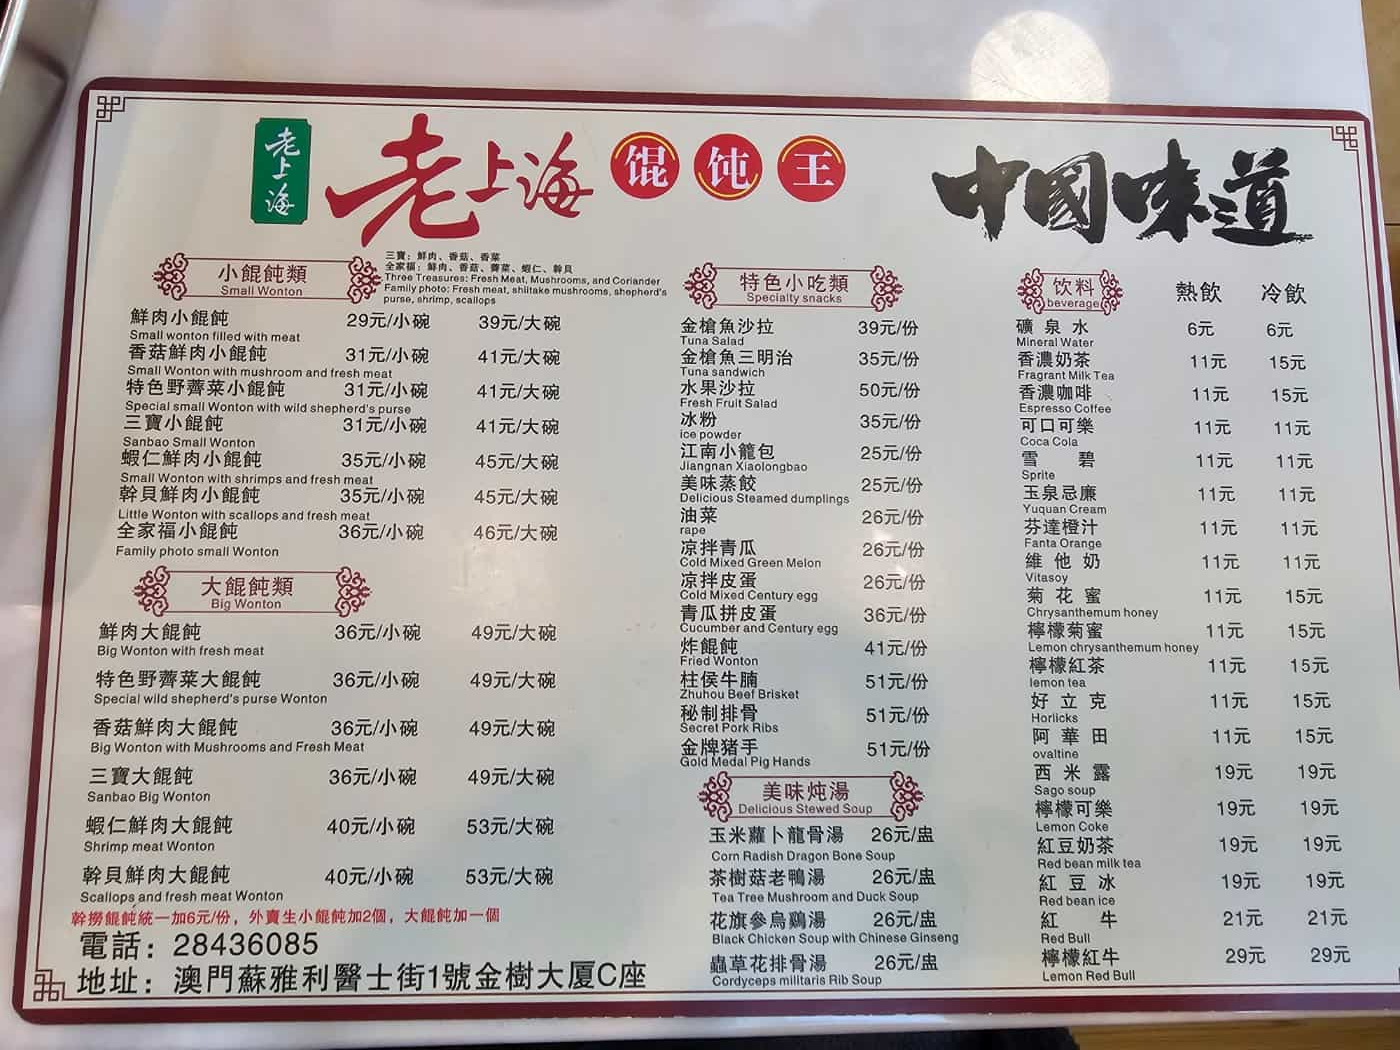 老上海
老上海 馄饨王
中國味道
小餛飩類
Small Wonton
三寶：鮮肉、香菇、香菜
全家福：鮮肉、香菇、薺菜、蝦仁、幹貝
Three Treasures: Fresh Meat, Mushrooms, and Coriander
Family photo: Fresh meat, shiitake mushrooms, shepherd's
purse, shrimp, scallops
鮮肉小餛飩 29元/小碗 39元/大碗
Small wonton filled with meat
香菇鮮肉小餛飩 31元/小碗 41元/大碗
Small Wonton with mushroom and fresh meat
特色野薺菜小餛飩 31元/小碗 41元/大碗
Special small Wonton with wild shepherd's purse
三寶小餛飩 31元/小碗 41元/大碗
Sanbao Small Wonton
蝦仁鮮肉小餛飩 35元/小碗 45元/大碗
Small Wonton with shrimps and fresh meat
幹貝鮮肉小餛飩 35元/小碗 45元/大碗
Little Wonton with scallops and fresh meat
全家福小餛飩 36元/小碗 46元/大碗
Family photo small Wonton
大餛飩類
Big Wonton
鮮肉大餛飩 36元/小碗 49元/大碗
Big Wonton with fresh meat
特色野薺菜大餛飩 36元/小碗 49元/大碗
Special wild shepherd's purse Wonton
香菇鮮肉大餛飩 36元/小碗 49元/大碗
Big Wonton with Mushrooms and Fresh Meat
三寶大餛飩 36元/小碗 49元/大碗
Sanbao Big Wonton
蝦仁鮮肉大餛飩 40元/小碗 53元/大碗
Shrimp meat Wonton
幹貝鮮肉大餛飩 40元/小碗 53元/大碗
Scallops and fresh meat Wonton
幹撈餛飩統一加6元/份，外賣生小餛飩加2個，大餛飩加一個
電話：28436085
地址：澳門蘇雅利醫士街1號金樹大厦C座
特色小吃類
Specialty snacks
金槍魚沙拉 39元/份
Tuna Salad
金槍魚三明治 35元/份
Tuna sandwich
水果沙拉 50元/份
Fresh Fruit Salad
冰粉 35元/份
ice powder
江南小籠包 25元/份
Jiangnan Xiaolongbao
美味蒸餃 25元/份
Delicious Steamed dumplings
油菜 26元/份
rape
凉拌青瓜 26元/份
Cold Mixed Green Melon
凉拌皮蛋 26元/份
Cold Mixed Century egg
青瓜拼皮蛋 36元/份
Cucumber and Century egg
炸餛飩 41元/份
Fried Wonton
柱侯牛腩 51元/份
Zhuhou Beef Brisket
秘制排骨 51元/份
Secret Pork Ribs
金牌猪手 51元/份
Gold Medal Pig Hands
美味炖湯
Delicious Stewed Soup
玉米蘿卜龍骨湯 26元/盅
Corn Radish Dragon Bone Soup
茶樹菇老鴨湯 26元/盅
Tea Tree Mushroom and Duck Soup
花旗參烏鷄湯 26元/盅
Black Chicken Soup with Chinese Ginseng
蟲草花排骨湯 26元/盅
Cordyceps militaris Rib Soup
饮料 熱飲 冷飲
beverage
礦泉水 6元 6元
Mineral Water
香濃奶茶 11元 15元
Fragrant Milk Tea
香濃咖啡 11元 15元
Espresso Coffee
可口可樂 11元 11元
Coca Cola
雪碧 11元 11元
Sprite
玉泉忌廉 11元 11元
Yuquan Cream
芬達橙汁 11元 11元
Fanta Orange
維他奶 11元 11元
Vitasoy
菊花蜜 11元 15元
Chrysanthemum honey
檸檬菊蜜 11元 15元
Lemon chrysanthemum honey
檸檬紅茶 11元 15元
lemon tea
好立克 11元 15元
Horlicks
阿華田 11元 15元
ovaltine
西米露 19元 19元
Sago soup
檸檬可樂 19元 19元
Lemon Coke
紅豆奶茶 19元 19元
Red bean milk tea
紅豆冰 19元 19元
Red bean ice
紅牛 21元 21元
Red Bull
檸檬紅牛 29元 29元
Lemon Red Bull